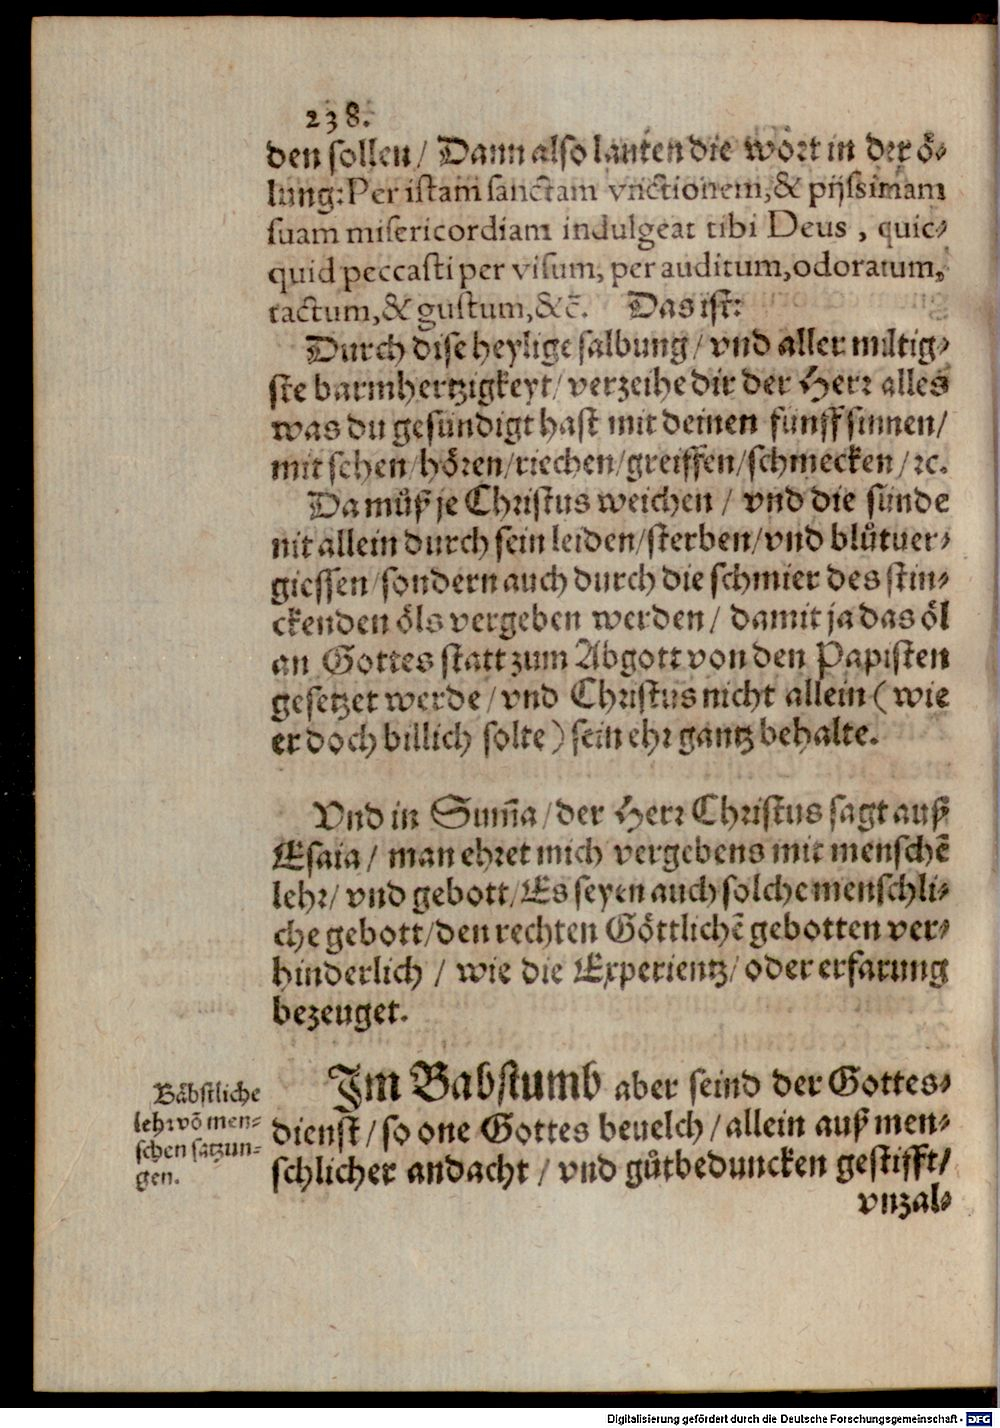 238.
den sollen/ Dann also lauten die wort in der ö-
lung: Per istam sanctam vnctionem, & pijssimam
suam misericordiam indulgeat tibi Deus, quic-
quid peccasti per visum, per auditum, odoratum,
tactum, & gustum, &c̄. Das ist:
Durch dise heylige salbung/ vnd aller miltig-
ste barmhertzigkeyt/ verzeihe dir der Herr alles
was du gesündigt hast mit deinen fünff sinnen/
mit sehen/ hören/ riechen/ greiffen/ schmecken/ ꝛc.
Da můß je Christus weichen/ vnd die sünde
nit allein durch sein leiden/ sterben/ vnd blůtuer-
giessen/ sondern auch durch die schmier des stin-
ckenden öls vergeben werden/ damit ja das öl
an Gottes statt zum Abgott von den Papisten
gesetzet werde/ vnd Christus nicht allein (wie
er doch billich solte) sein ehr gantz behalte.
Vnd in Sum̄a/ der Herr Christus sagt auß
Esaia/ man ehret mich vergebens mit menschē
lehr/ vnd gebott/ Es seyen auch solche menschli-
che gebott/ den rechten Göttlichē gebotten ver-
hinderlich/ wie die Experientz/ oder erfarung
bezeuget.
Bäbstliche
lehr võ men-
schen satzun-
gen.
Im Babstumb aber seind der Gottes-
dienst/ so one Gottes beuelch/ allein auß men-
schlicher andacht/ vnd gůtbeduncken gestifft/
vnzal-
Digitalisierung gefördert durch die Deutsche Forschungsgemeinschaft - DFG